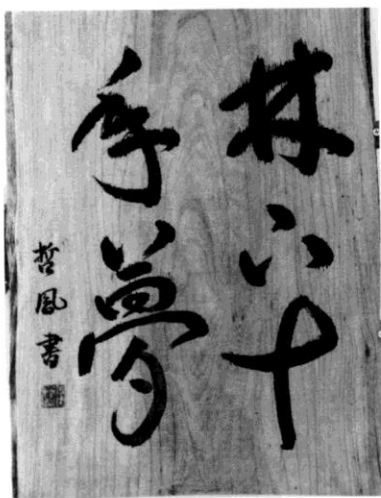 林六十
年夢
哲風書